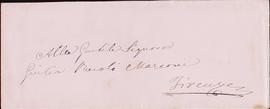 Alla Gentile Signora
Giulia Marconi
Firenze